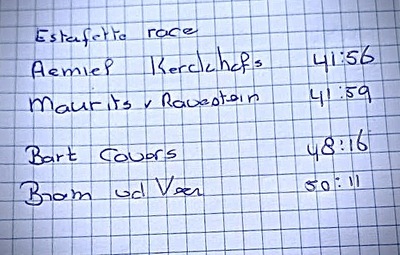 Estafette race
Aemiel Kerckhofs 41:56
Maurits v Ravestein 41:59
Bart Covers 48:16
Bram vd Veer 50:11